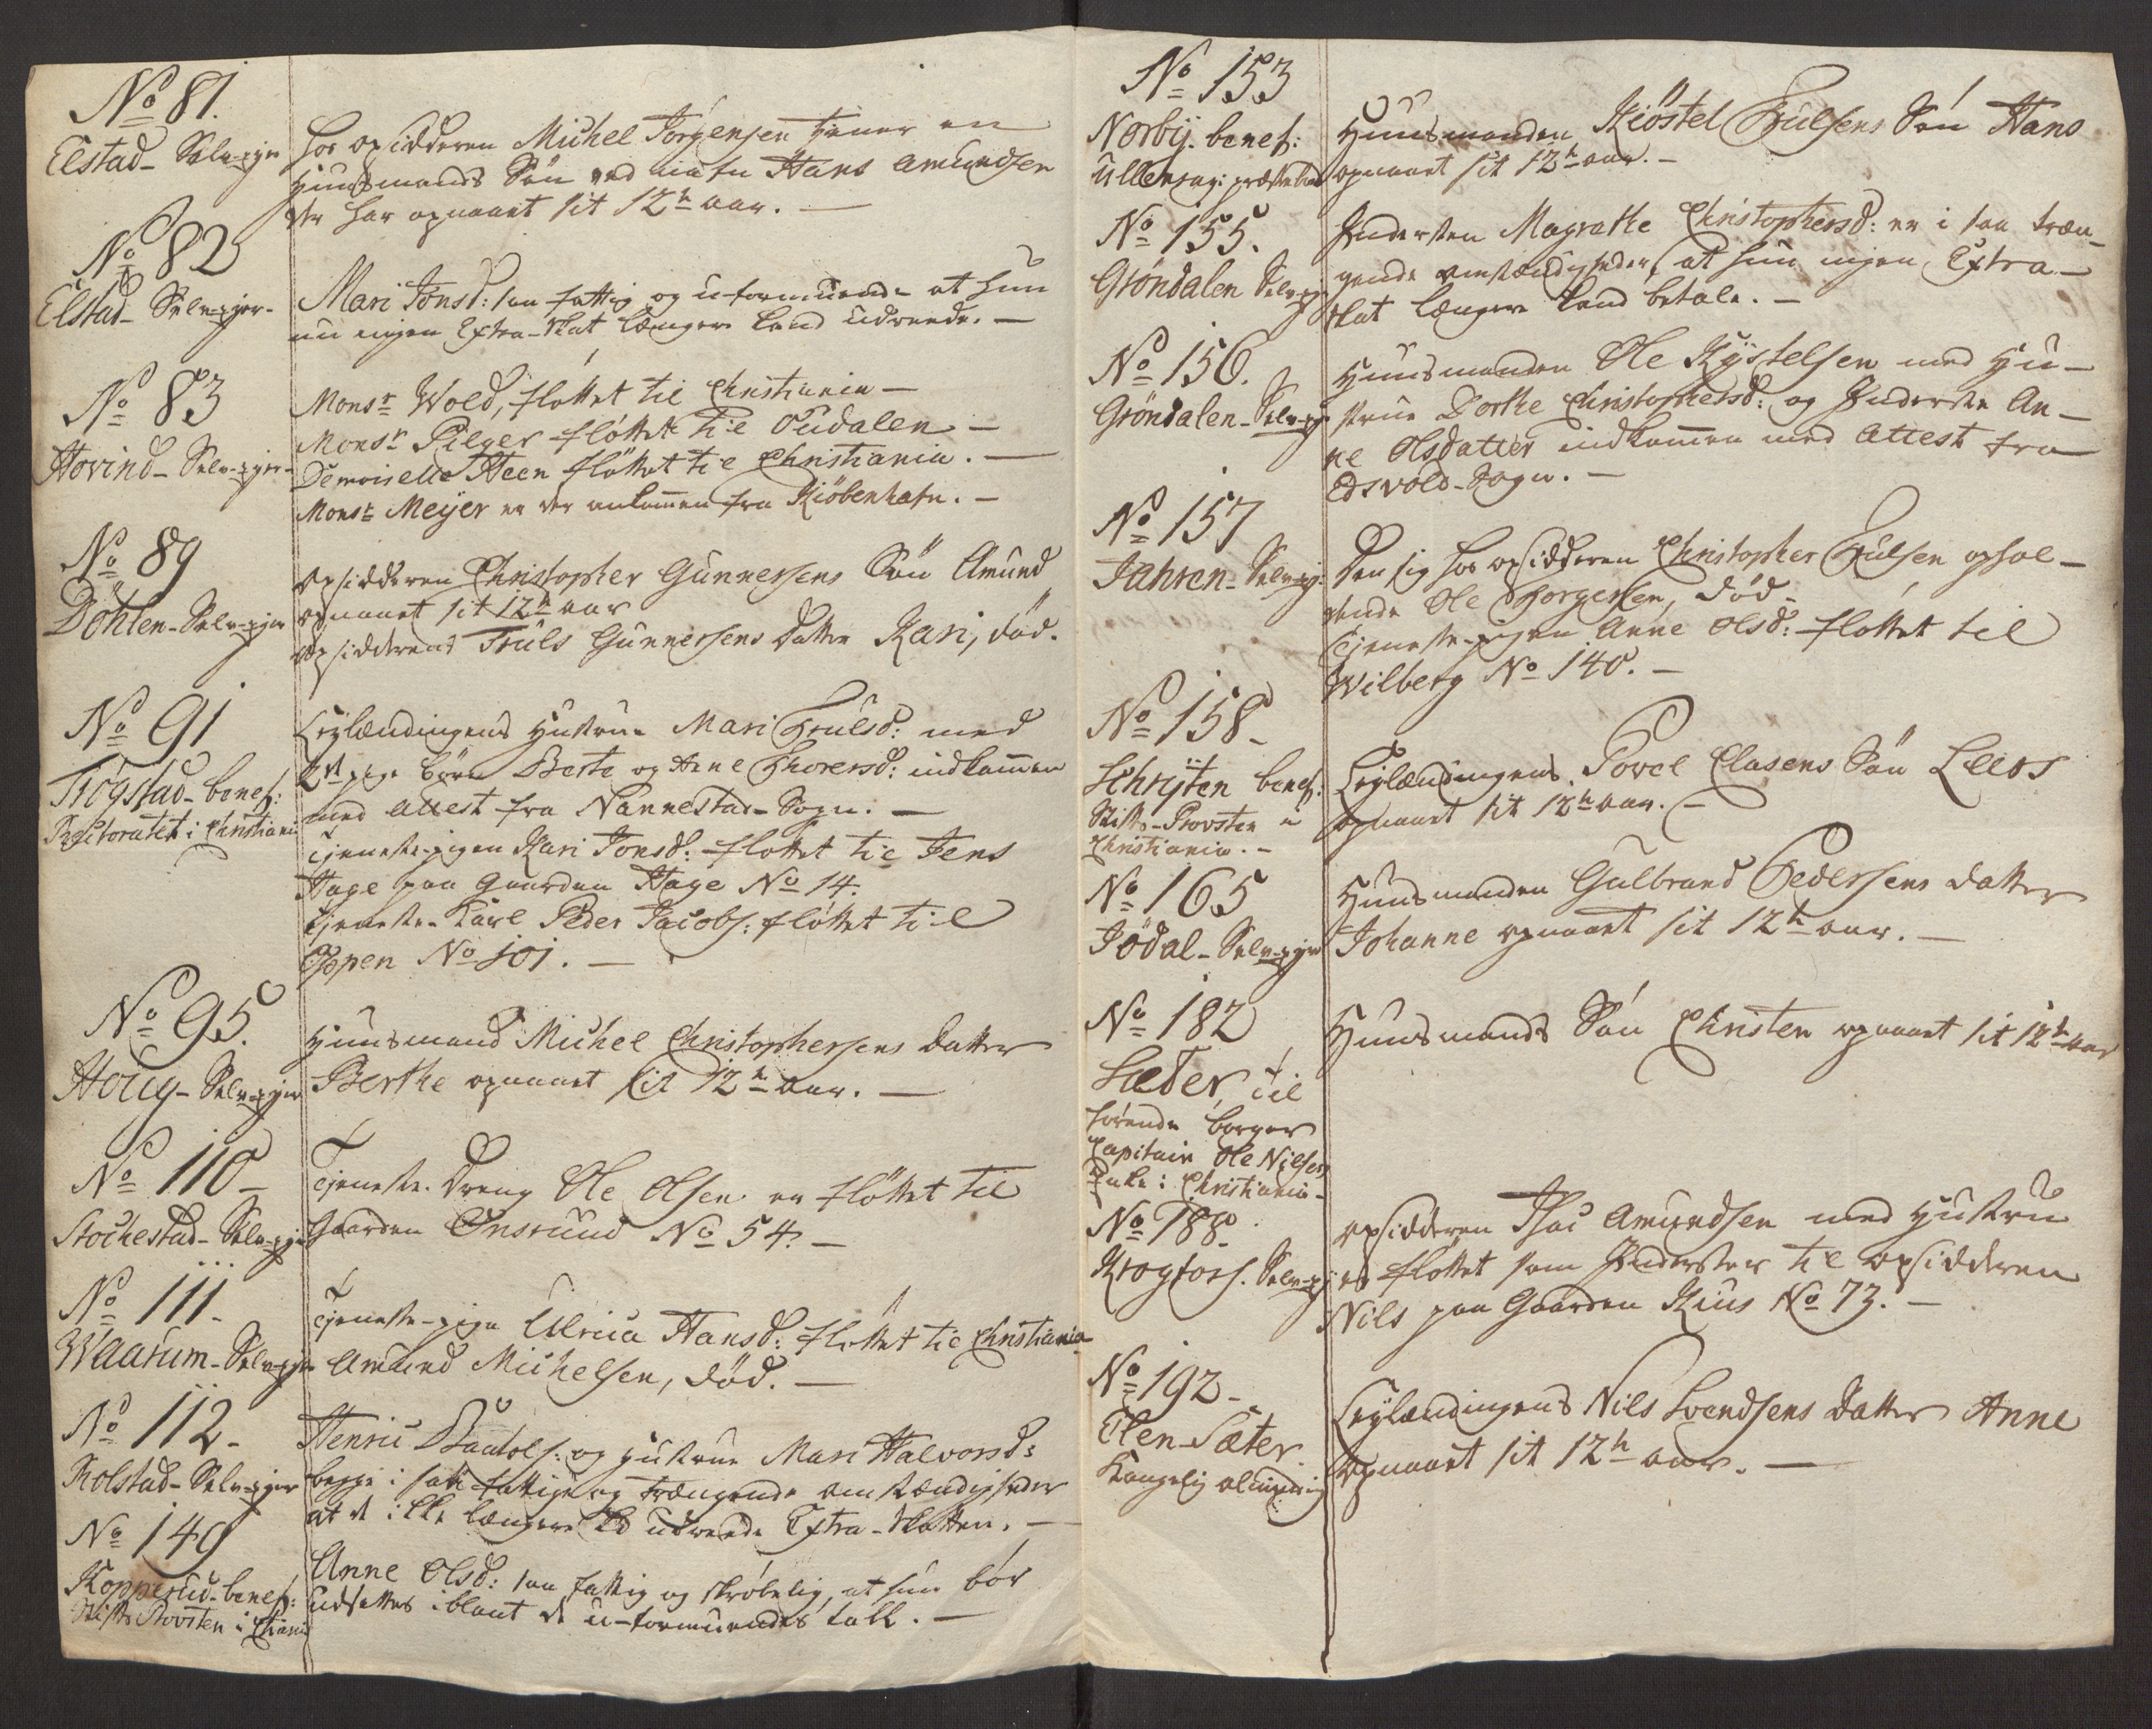 No 81.
Elstad- Selv-ejer
hos opsidderen Michel Jörgensen tiener en
Huusmands Sön ved nafn Hans Amundsen
der har opnaaet sit 12te aar. —
No 82
Elstad- Selv-ejer-
Mari Jonsd: saa fattig og uformuende at hun
nu ingen Extra-Skat længere kand udreede. —
No 83
Hovind- Selv-ejer-
Monsr Wold, flöttet til Christiania —
Monsr Pilger flöttet til Oudalen —
Demoiselle Steen flöttet til Christiania. —
Monsr Meijer er der ankommen fra Kiöbenhafn. —
No 89
Döhlen- Selv-ejer
opsidderen Christopher Gunnersens Sön Amund
opnaaet sit 12te aar
opsidderens Truls Gunnersens datter Kari, död.
No 91
Trögstad- benef:
Rectoratet i Christiania
Leylændingens Hustrue Mari Trulsd: med
2de pige börn Berte og Anne Thorersd: indkommen
med Attest fra Nannestad- Sogn. —
Tjeneste-pigen Kari Jonsd: flöttet til Jens
Hage paa Gaarden Hage No 14.
Tjeneste-Karl Peder Jacobs: flöttet til
Ieppen No 101. —
No 95.
Houg- Selv-ejer
Huusmand Michel Christophersens datter
Berthe opnaaet sit 12te aar. —
No 110 —
Stochestad- Selv-ejer
Tjeneste-Dreng Ole Olsen er flöttet til
Gaarden Onsrund No 54. —
No 111 -
Waarum- Selv-ejer
Tjeneste-pige Ulrica Hansd: flöttet til Christiania
Amund Michelsen, död. —
No 112 -
Rolstad- Selv-ejer
Henric Baadols: og hustrue Mari Halvorsd:
begge i saa fattige og trængende omstændigheder
at de ikke længere kd udreede Extra-Skatten. —
No 149
Kopperud- benef:
Stifts Provsten i Chania
Anne Olsd: saa fattig og skröbelig, at hun bör
udsettes iblant de u-formuendes tall. —
No 153
Norbij- benef:
Ullensager præstebord
Huusmanden Kiöstel Trulsens Sön Hans
opnaaet sit 12te aar. —
No 155.
Gröndalen Selv-ejer
Indersten Magrethe Christophersd: er i saa træn-
gende omstændigheder, at hun ingen Extra-
Skat længere kand betale. —
No 156.
Gröndalen- Selv-ejer
Huusmanden Ole Kystelsen med Hu-
strue Dorthe Christophersd: og Inderste An-
ne Olsdatter indkommen med Attest fra
Edsvold- Sogn. —
No 157
Jahren- Selv-ej:
Den sig hos opsidderen Christopher Trulsen ophol-
dende Ole Thorgersen, död —
Tjeneste-pigen Anne Olsd: flöttet til
Wilberg No 140. —
No 158 -
Schrijten benef:
Stifts-Provsten i
Christiania. —
Leylændingens Povel Clasens Sön Leevs
opnaaet sit 12te aar. —
No 165
Jödal- Selv-ejer
Huusmanden Gulbrand Pedersens datter
Johanne opnaaet sit 12te aar. —
No 182
Sæter, til
hörende borger
Capitain Ole Nilsen
i Christiania -
Huusmands Sön Christen opnaaet sit 12te aar
No 188 -
Krogfoss. Selv-ej
opsidderen Isac Amundsen med Hustrue
er flöttet som Inderster til opsidderen
Nils paa Gaarden Kius No 73. —
No 192 -
Elen- Sæter
Kongelig alminding
Leylændingens Nils Svendsens datter Anne
opnaaet sit 12te aar. —